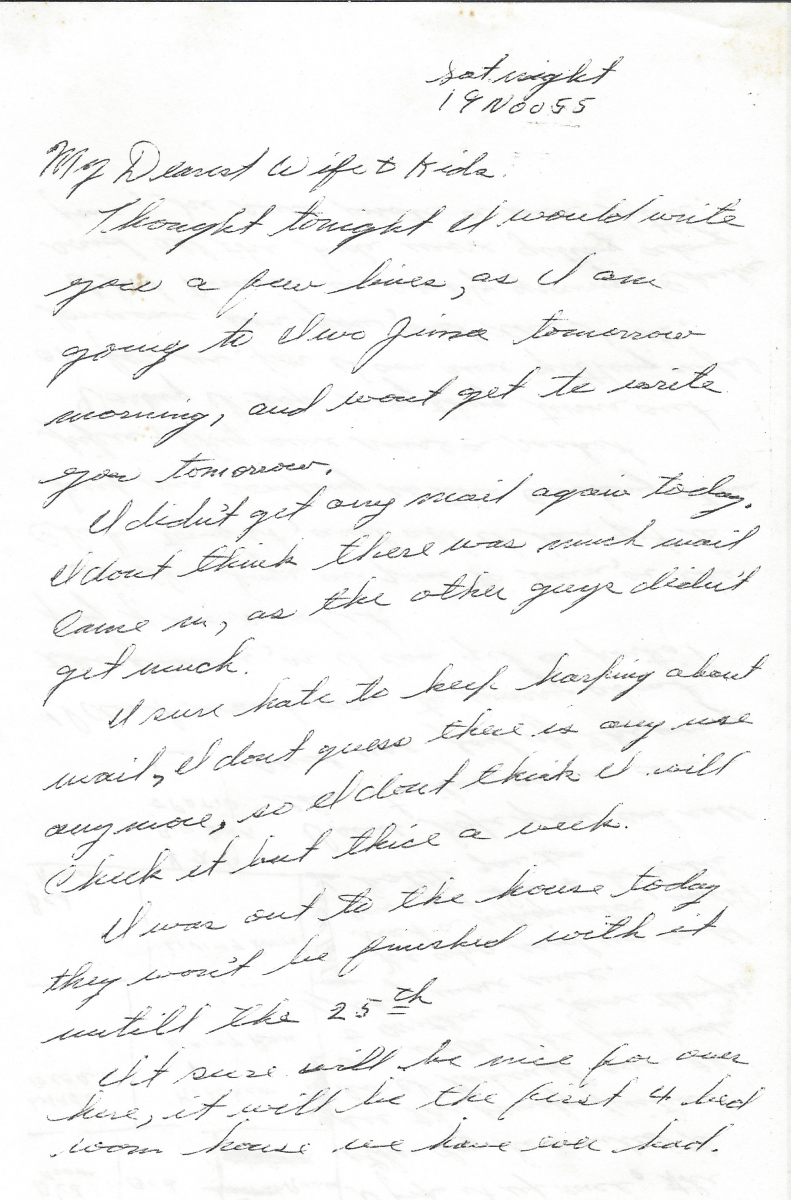 Sat night
19 Nov 55
My Dearest Wife & Kids.
Thought tonight I would write
you a few lines, as I am
going to Iwo Jima tomorrow
morning, and wont get to write
you tomorrow.
I didn't get any mail again today.
I dont think there was much mail
came in, as the other guys didn't
get much.
I sure hate to keep harping about
mail, I dont guess there is any use
anymore, so I dont think I will
Check it but thice a week.
I was out to the house today
they won't be finished with it
untill the 25th
It sure will be nice for over
here, it will be the first 4 bed
room house we have ever had.